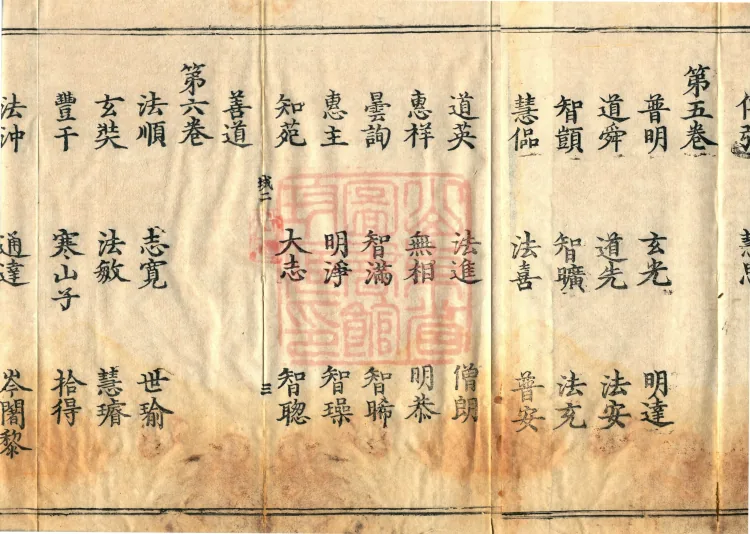 第五卷
普明 玄光 明達
道舜 道先 法安
智顗 智曠 法充
慧偘 法喜 普安
道英 法進 僧朗
惠祥 無相 明恭
曇詢 智滿 智晞
惠主 明淨 智璪
知苑 大志 智聰
城二 三
善道
第六卷
法順 志寬 世瑜
玄奘 法敏 慧璿
豐干 寒山子 拾得
法沖 通達 岑闍黎